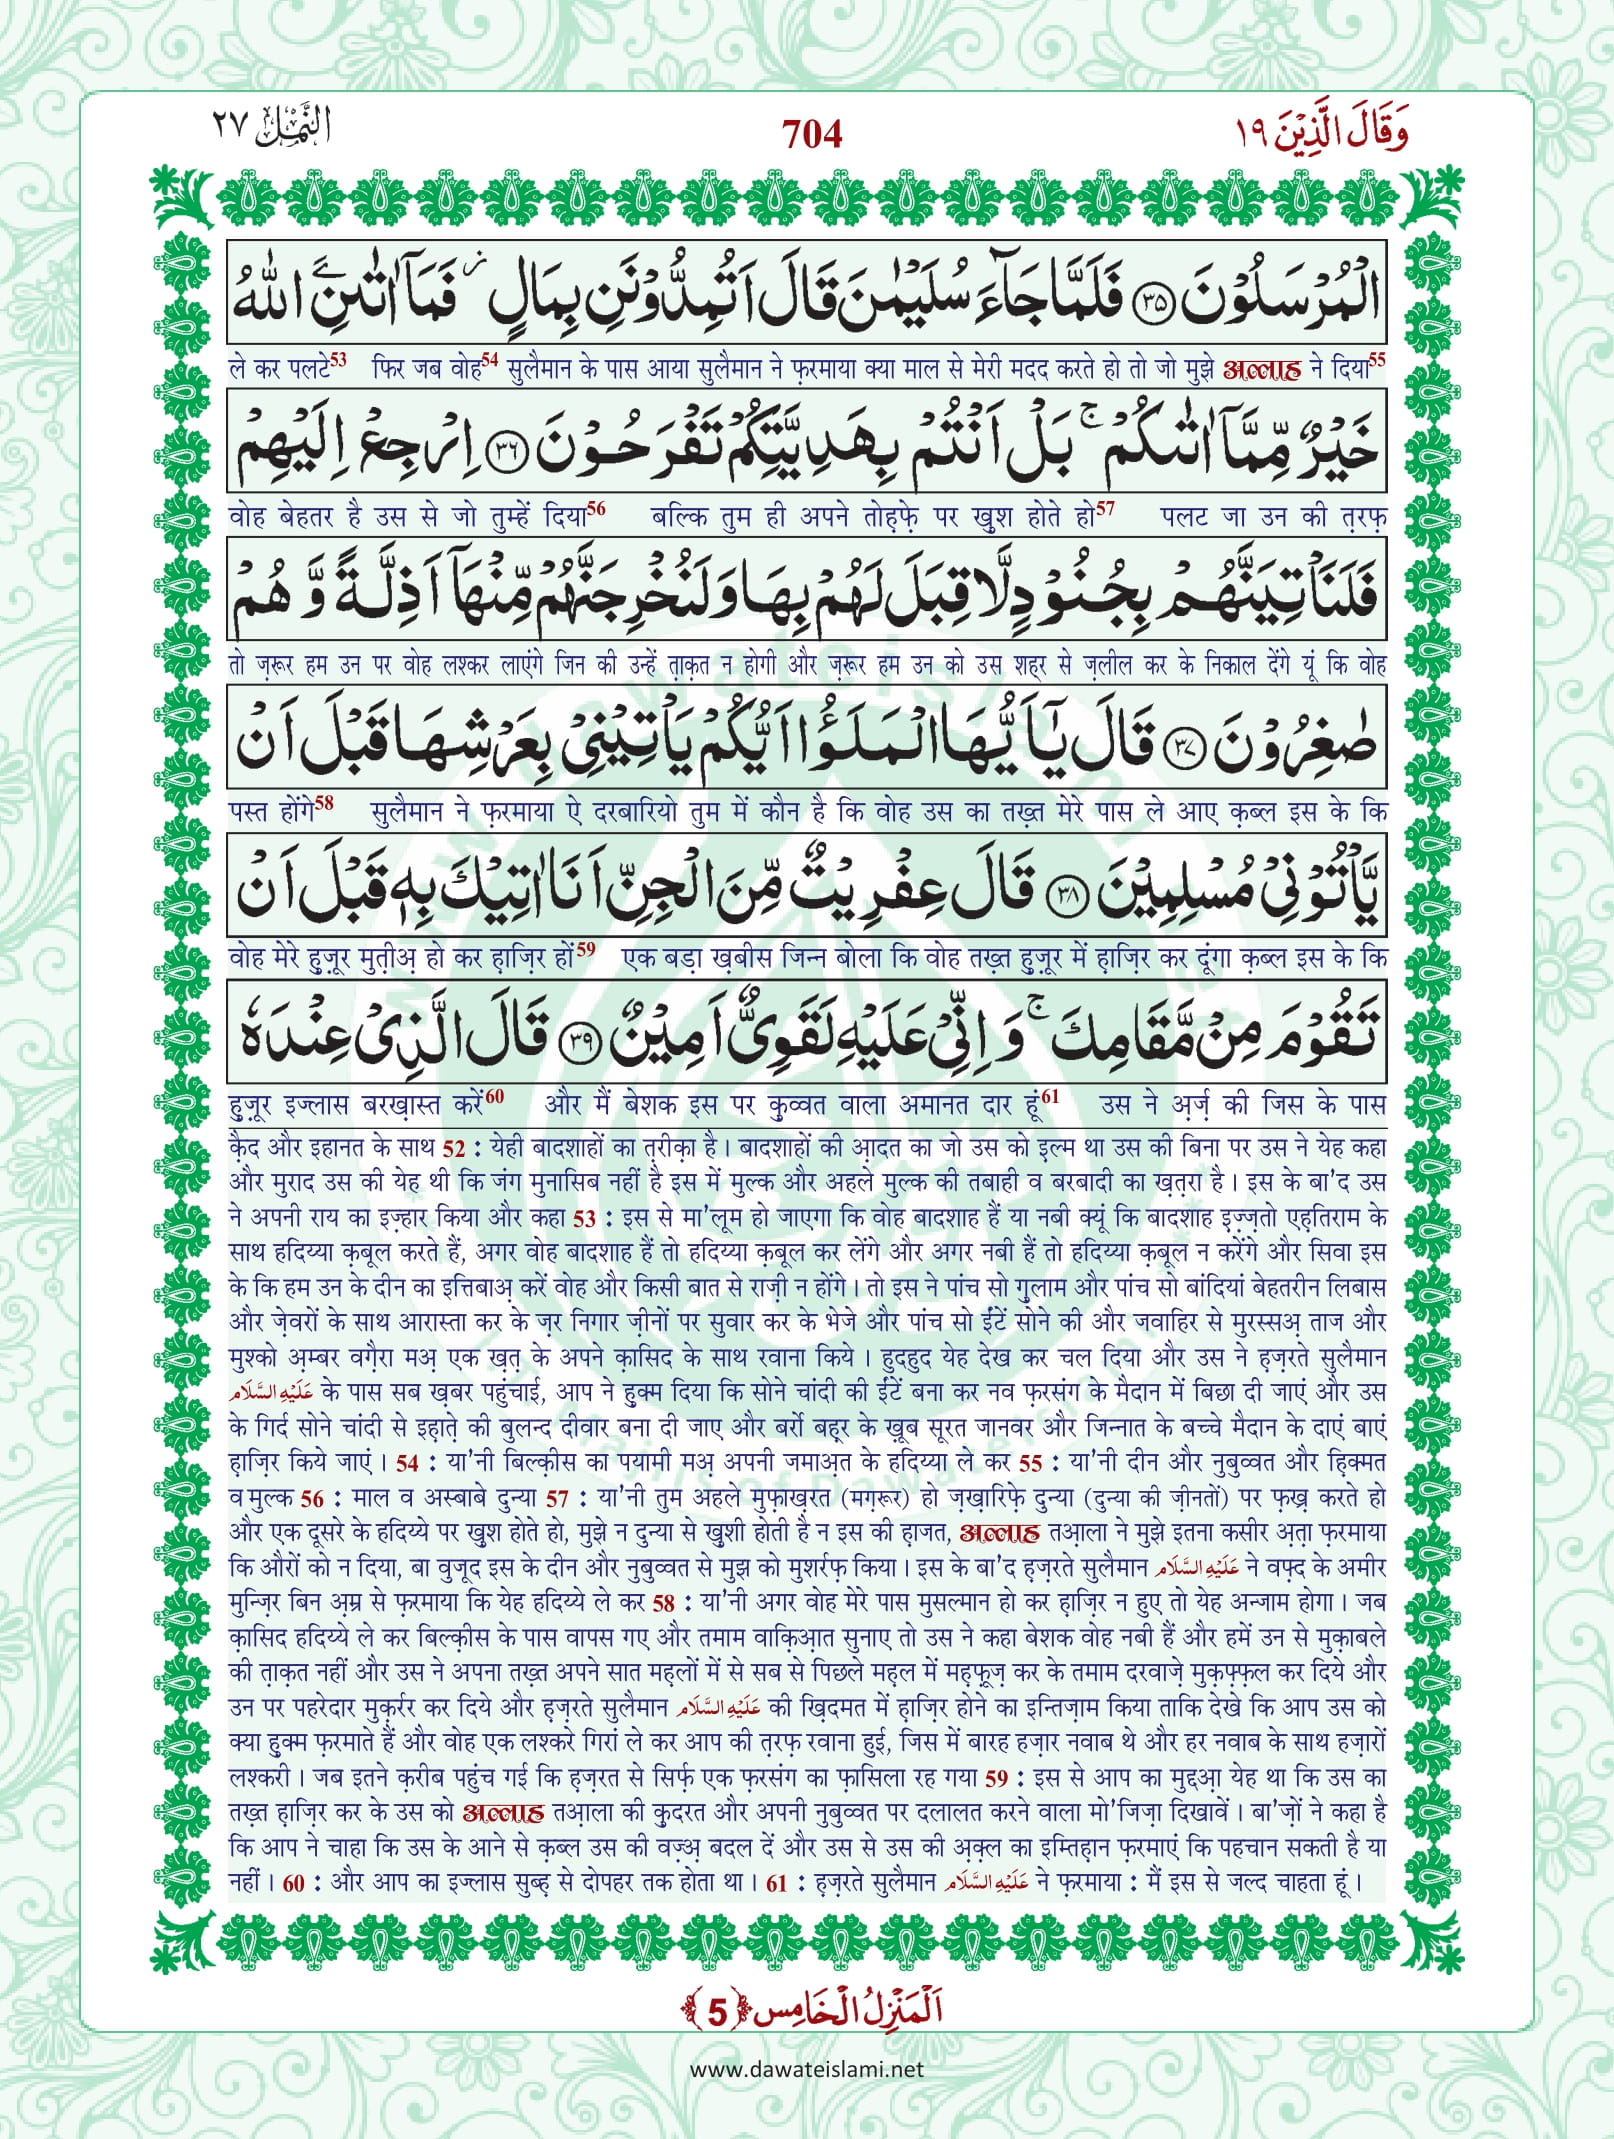 وَقَالَ الَّذِیْنَ ١٩ 704 النَّمْل ٢٧
الْمُرْسَلُوْنَ ﴿۳۵﴾ فَلَمَّا جَآءَ سُلَیْمٰنَ قَالَ اَتُمِدُّوْنَنِ بِمَالٍ ز فَمَاۤ اٰتٰىنِۦَ اللّٰهُ
ले कर पलटे53 फिर जब वोह54 सुलैमान के पास आया सुलैमान ने फ़रमाया क्या माल से मेरी मदद करते हो तो जो मुझे अल्लाह ने दिया55
خَیْرٌ مِّمَّاۤ اٰتٰىكُمْ ۚ بَلْ اَنْتُمْ بِهَدِیَّتِكُمْ تَفْرَحُوْنَ ﴿۳۶﴾ اِرْجِعْ اِلَیْهِمْ
वोह बेहतर है उस से जो तुम्हें दिया56 बल्कि तुम ही अपने तोह़फ़े पर ख़ुश होते हो57 पलट जा उन की त़रफ़
فَلَنَاْتِیَنَّهُمْ بِجُنُوْدٍ لَّا قِبَلَ لَهُمْ بِهَا وَلَنُخْرِجَنَّهُمْ مِّنْهَاۤ اَذِلَّةً وَّهُمْ
तो ज़रूर हम उन पर वोह लश्कर लाएंगे जिन की उन्हें त़ाक़त न होगी और ज़रूर हम उन को उस शह्‌र से ज़लील कर के निकाल देंगे यूं कि वोह
صٰغِرُوْنَ ﴿۳۷﴾ قَالَ یٰۤاَیُّهَا الْمَلَؤُا اَیُّكُمْ یَاْتِیْنِیْ بِعَرْشِهَا قَبْلَ اَنْ
पस्त होंगे58 सुलैमान ने फ़रमाया ऐ दरबारियो तुम में कौन है कि वोह उस का तख़्त मेरे पास ले आए क़ब्ल इस के कि
یَّاْتُوْنِیْ مُسْلِمِیْنَ ﴿۳۸﴾ قَالَ عِفْرِیْتٌ مِّنَ الْجِنِّ اَنَا اٰتِیْكَ بِهٖ قَبْلَ اَنْ
वोह मेरे हुज़ूर मुत़ीअ़ हो कर ह़ाज़िर हों59 एक बड़ा ख़बीस जिन्न बोला कि वोह तख़्त हुज़ूर में ह़ाज़िर कर दूंगा क़ब्ल इस के कि
تَقُوْمَ مِنْ مَّقَامِكَ ۚ وَ اِنِّیْ عَلَیْهِ لَقَوِیٌّ اَمِیْنٌ ﴿۳۹﴾ قَالَ الَّذِیْ عِنْدَهٗ
हुज़ूर इज्लास बरख़ास्त करें60 और मैं बेशक इस पर क़ुव्वत वाला अमानत दार हूं61 उस ने अ़र्ज़ की जिस के पास
क़ैद और इहानत के साथ 52 : येही बादशाहों का त़रीक़ा है। बादशाहों की आ़दत का जो उस को इ़ल्म था उस की बिना पर उस ने येह कहा
और मुराद उस की येह थी कि जंग मुनासिब नहीं है इस में मुल्क और अहले मुल्क की तबाही व बरबादी का ख़त़रा है। इस के बा'द उस
ने अपनी राय का इज़्हार किया और कहा 53 : इस से मा'लूम हो जाएगा कि वोह बादशाह हैं या नबी क्यूं कि बादशाह इ़ज़्ज़तो एह़तिराम के
साथ हदिय्या क़बूल करते हैं, अगर वोह बादशाह हैं तो हदिय्या क़बूल कर लेंगे और अगर नबी हैं तो हदिय्या क़बूल न करेंगे और सिवा इस
के कि हम उन के दीन का इत्तिबाअ़ करें वोह और किसी बात से राज़ी न होंगे। तो इस ने पांच सो ग़ुलाम और पांच सो बांदियां बेहतरीन लिबास
और ज़ेवरों के साथ आरास्ता कर के ज़र निगार ज़ीनों पर सुवार कर के भेजे और पांच सो ईंटें सोने की और जवाहिर से मुरस्सअ़ ताज और
मुश्को अ़म्बर वग़ैरा मअ़ एक ख़त़ के अपने क़ासिद के साथ रवाना किये। हुदहुद येह देख कर चल दिया और उस ने ह़ज़रते सुलैमान
عَلَیْهِ السَّلَام के पास सब ख़बर पहुंचाई, आप ने हुक्म दिया कि सोने चांदी की ईंटें बना कर नव फ़रसंग के मैदान में बिछा दी जाएं और उस
के गिर्द सोने चांदी से इह़ात़े की बुलन्द दीवार बना दी जाए और बर्रो बह़्र के ख़ूब सूरत जानवर और जिन्नात के बच्चे मैदान के दाएं बाएं
ह़ाज़िर किये जाएं। 54 : या'नी बिल्क़ीस का पयामी मअ़ अपनी जमाअ़त के हदिय्या ले कर 55 : या'नी दीन और नुबुव्वत और ह़िक्मत
व मुल्क 56 : माल व अस्बाबे दुन्या 57 : या'नी तुम अहले मुफ़ाख़रत (मग़रूर) हो ज़ख़ारिफ़े दुन्या (दुन्या की ज़ीनतों) पर फ़ख़्र करते हो
और एक दूसरे के हदिय्ये पर ख़ुश होते हो, मुझे न दुन्या से ख़ुशी होती है न इस की ह़ाजत, अल्लाह तआ़ला ने मुझे इतना कसीर अ़त़ा फ़रमाया
कि औरों को न दिया, बा वुजूद इस के दीन और नुबुव्वत से मुझ को मुशर्रफ़ किया। इस के बा'द ह़ज़रते सुलैमान عَلَیْهِ السَّلَام ने वफ़्द के अमीर
मुन्ज़िर बिन अ़म्र से फ़रमाया कि येह हदिय्ये ले कर 58 : या'नी अगर वोह मेरे पास मुसल्मान हो कर ह़ाज़िर न हुए तो येह अन्जाम होगा। जब
क़ासिद हदिय्ये ले कर बिल्क़ीस के पास वापस गए और तमाम वाक़िआ़त सुनाए तो उस ने कहा बेशक वोह नबी हैं और हमें उन से मुक़ाबले
की त़ाक़त नहीं और उस ने अपना तख़्त अपने सात मह़लों में से सब से पिछले मह़ल में मह़फ़ूज़ कर के तमाम दरवाज़े मुक़फ़्फ़ल कर दिये और
उन पर पहरेदार मुक़र्रर कर दिये और ह़ज़रते सुलैमान عَلَیْهِ السَّلَام की ख़िदमत में ह़ाज़िर होने का इन्तिज़ाम किया ताकि देखे कि आप उस को
क्या हुक्म फ़रमाते हैं और वोह एक लश्करे गिरां ले कर आप की त़रफ़ रवाना हुई, जिस में बारह हज़ार नवाब थे और हर नवाब के साथ हज़ारों
लश्करी। जब इतने क़रीब पहुंच गई कि ह़ज़रत से सिर्फ़ एक फ़रसंग का फ़ासिला रह गया 59 : इस से आप का मुद्दआ़ येह था कि उस का
तख़्त ह़ाज़िर कर के उस को अल्लाह तआ़ला की क़ुदरत और अपनी नुबुव्वत पर दलालत करने वाला मो'जिज़ा दिखावें। बा'ज़ों ने कहा है
कि आप ने चाहा कि उस के आने से क़ब्ल उस की वज़्अ़ बदल दें और उस से उस की अ़क़्ल का इम्तिह़ान फ़रमाएं कि पहचान सकती है या
नहीं। 60 : और आप का इज्लास सुब्ह़ से दोपहर तक होता था। 61 : ह़ज़रते सुलैमान عَلَیْهِ السَّلَام ने फ़रमाया : मैं इस से जल्द चाहता हूं।
اَلْمَنْزِلُ الْخَامِس ﴿5﴾
www.dawateislami.net